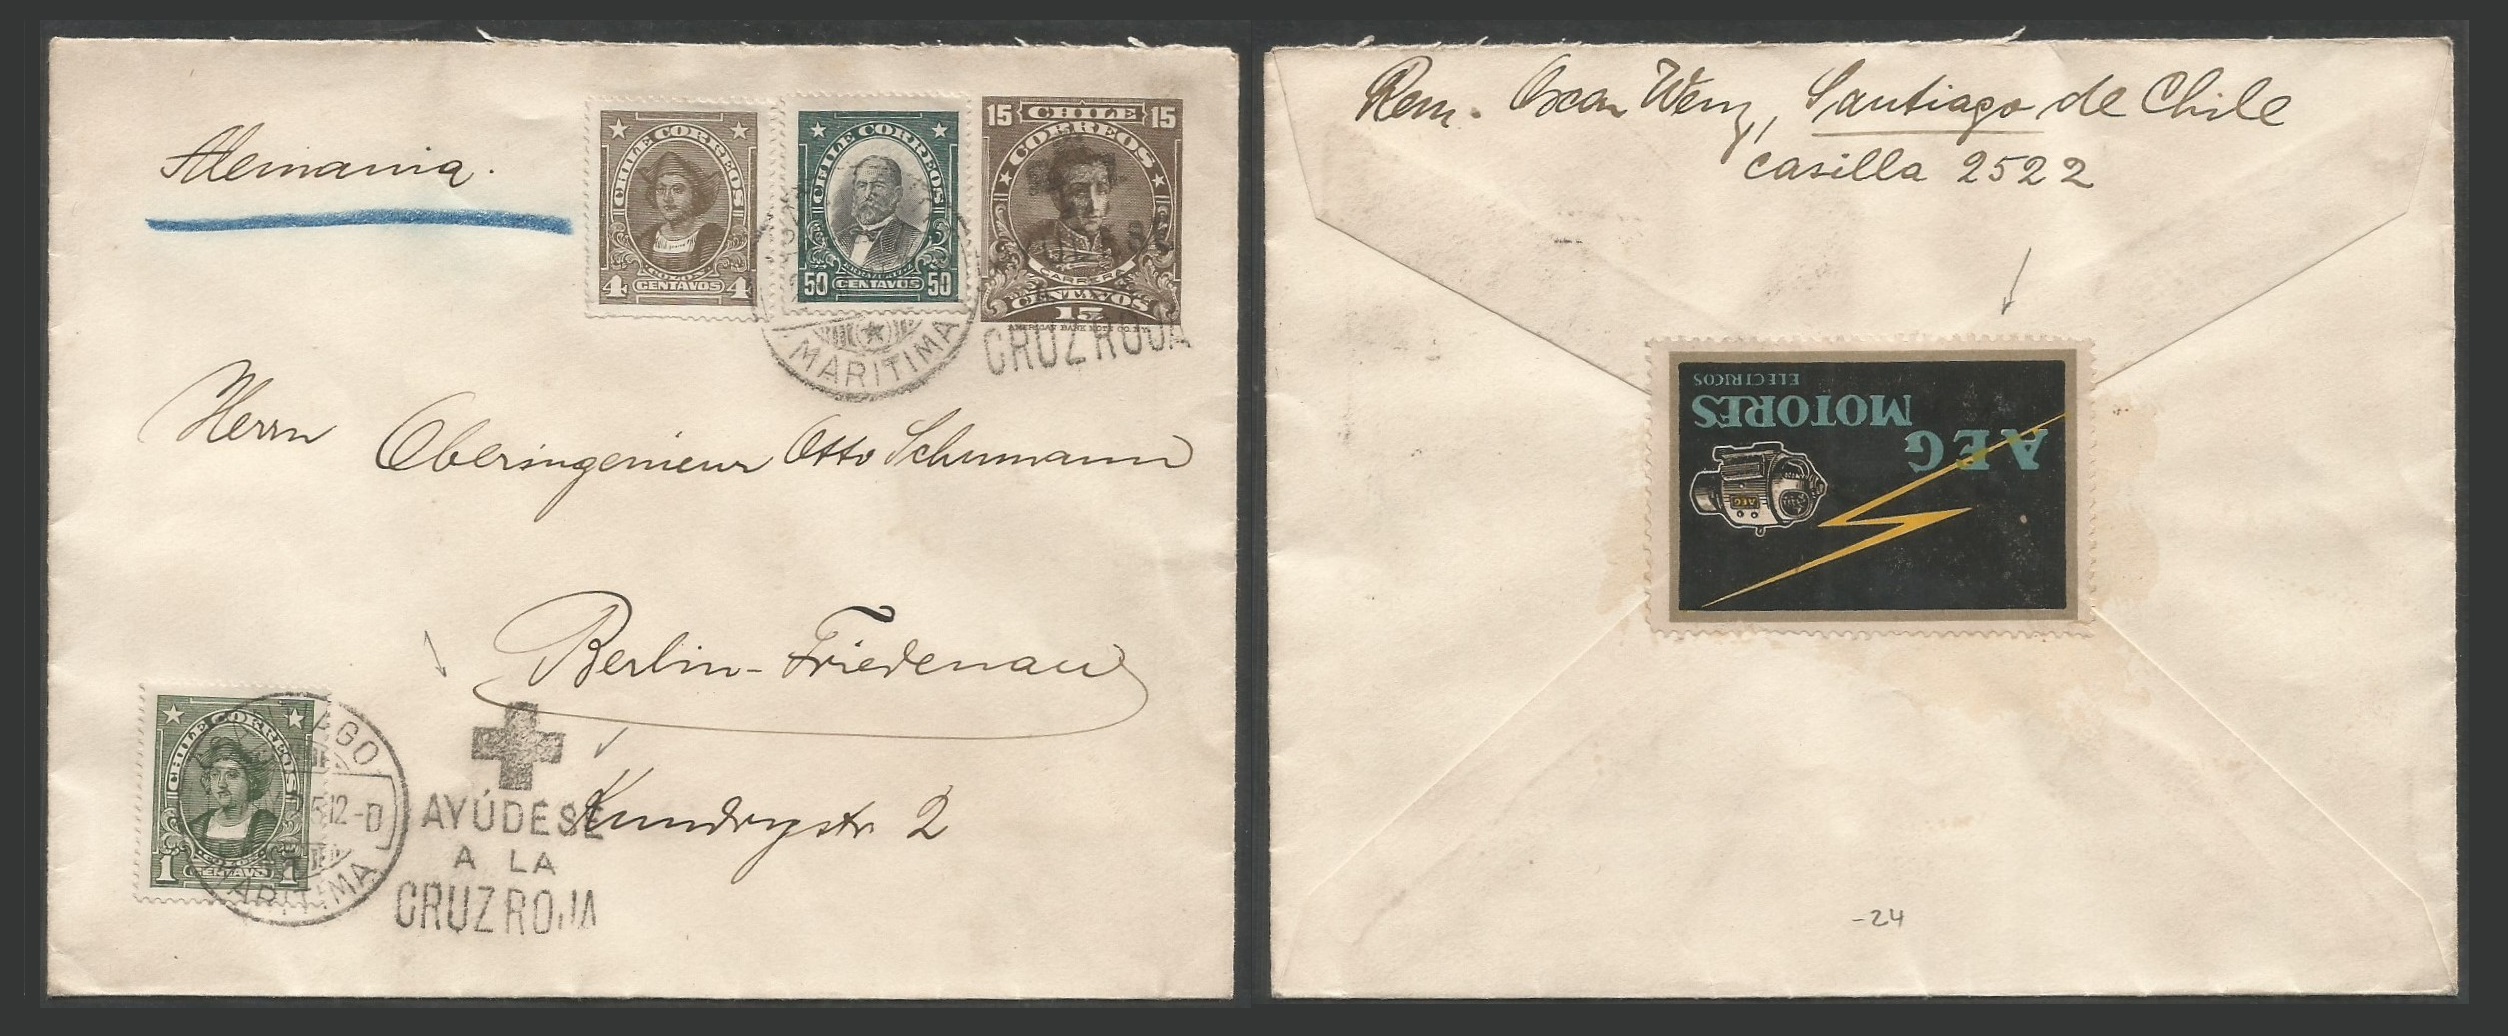 Alemania.
CHILE CORREOS
COLON
4 CENTAVOS 4
CHILE CORREOS
50 CENTAVOS 50
15 CHILE 15
CORREOS
CARRERA
CENTAVOS
15
AMERICAN BANK NOTE CO. N.Y.
MARITIMA
CRUZ ROJA
Herrn Oberingenieur Otto Schumann
Berlin-Friedenau
Kundrystr 2
CHILE CORREOS
1 CENTAVO 1
12-D
MARITIMA
AYÚDESE
A LA
CRUZ ROJA
Rem. Oscar Wenz, Santiago de Chile
casilla 2522
AEG
MOTORES
ELECTRICOS
AEG
-24